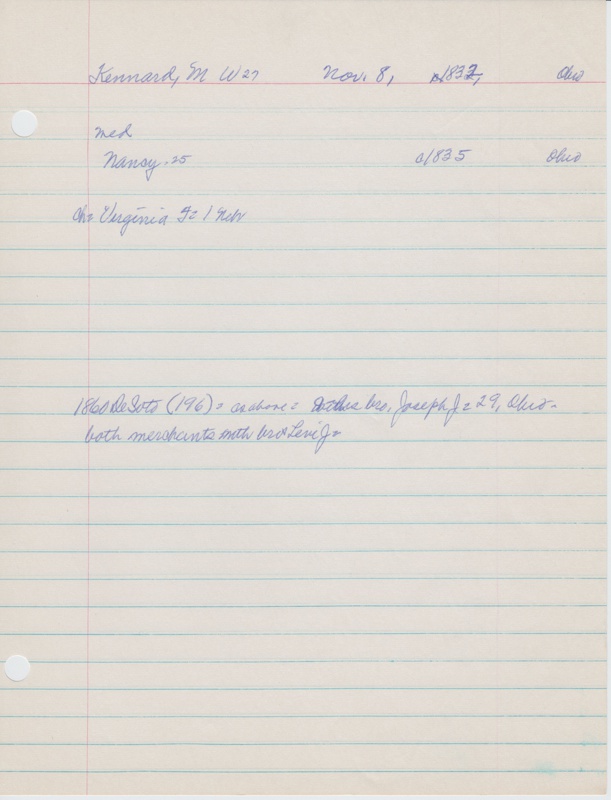 Kennard, M W 27 Nov. 8, a1832, Ohio
med
Nansy - 25 a1835 Ohio
ch= Verginia F= 1 Nebr
1860 DeSoto (196) = as above = bro. Joseph J= 29, Ohio-
both merchants with bro Levi J=